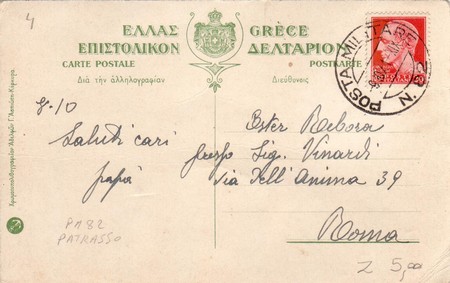 4
ΕΛΛΑΣ GRÈCE
ΕΠΙΣΤΟΛΙΚΟΝ ΔΕΛΤΑΡΙΟΝ
CARTE POSTALE POSTKARTE
Διὰ τὴν ἀλληλογραφίαν Διεύθυνσις
POSTA MILITARE N. 82
8-10
Saluti cari
papà
Ester Rebora
presso Sig. Vinardi
via Dell'Anima 39
Roma
PM 82
PATRASSO
Z 5,00